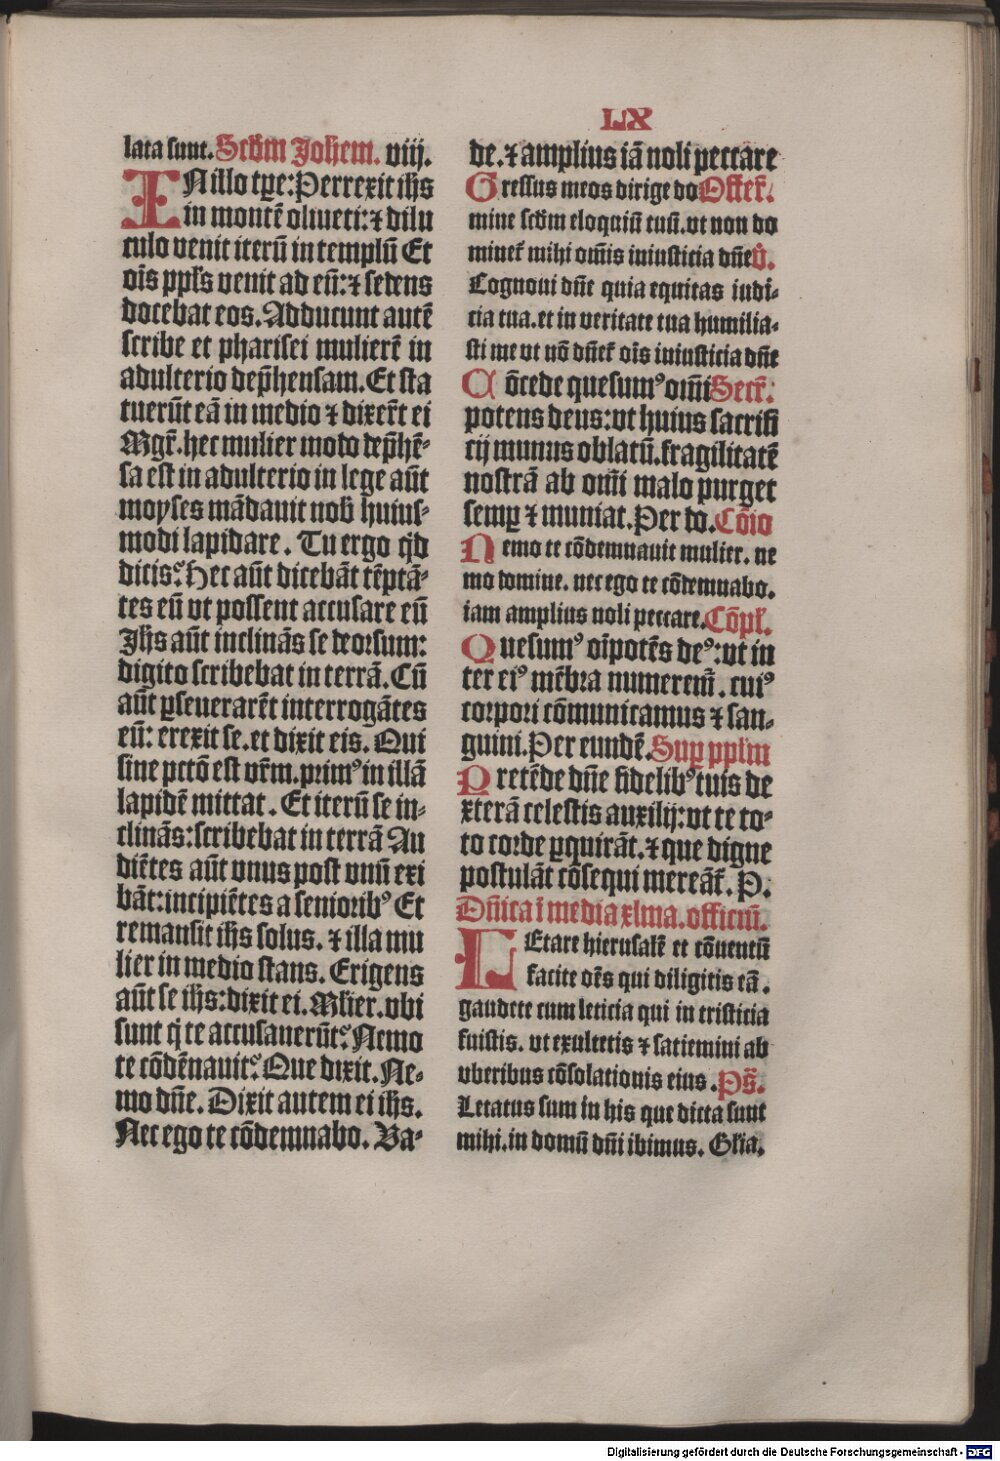 LX
lata sunt. Scd̄m Johem. viij.
IN illo tꝑe: Perrexit ihs
in montē oliueti: ⁊ dilu
culo venit iterū in templū Et
oīs ppl̄s venit ad eū: ⁊ sedens
docebat eos. Adducunt autē
scribe et pharisei mulierē in
adulterio dep̄hensam. Et sta
tuerūt eā in medio ⁊ dixer̄t ei
Mgr̄. hec mulier modo dep̄hē-
sa est in adulterio in lege aūt
moyses mādauit nob̄ huius-
modi lapidare. Tu ergo qd̄
dicis? Hec aūt dicebāt tēptā-
tes eū vt possent accusare eū
Jhs aūt inclinās se deorsum:
digito scribebat in terrā. Cū
aūt ꝑseuerarēt interrogātes
eū: erexit se. et dixit eis. Qui
sine pctō est vr̄m. primꝰ in illā
lapidē mittat. Et iterū se in-
clinās: scribebat in terrā Au
diētes aūt vnus post vnū exi
bāt: incipiētes a senioribꝰ Et
remansit ihs solus. ⁊ illa mu
lier in medio stans. Erigens
aūt se ihs: dixit ei. Ml̄ier. vbi
sunt q̄ te accusauerūt? Nemo
te cōdēnauit? Que dixit. Ne-
mo dn̄e. Dixit autem ei ihs.
Nec ego te cōdemnabo. Va-
de. ⁊ amplius iā noli peccare
Gressus meos dirige do Offer̄.
mine scd̄m eloquiū tuū. vt non do
miner̄ mihi om̄is iniusticia dn̄e v̄.
Cognoui dn̄e quia equitas iudi-
cia tua. et in veritate tua humilia-
sti me vt nō dn̄er̄ oīs iniusticia dn̄e
Cōcede quesumꝰ om̄i Secr̄.
potens deus: vt huius sacrifi
cij munus oblatū. fragilitatē
nostrā ab om̄i malo purget
semꝑ ⁊ muniat. Per do. Cōio
Nemo te cōdemnauit mulier. ne
mo domine. nec ego te cōdemnabo.
iam amplius noli peccare. Cōpl̄.
Quesumꝰ oīpotēs deꝰ: vt in
ter eiꝰ mēbra numeremr̄. cuiꝰ
corpori cōmunicamus ⁊ san-
guini. Per eundē. Suꝑ ppl̄m
Pretēde dn̄e fidelibꝰ tuis de
xterā celestis auxilij: vt te to-
to corde ꝑquirāt. ⁊ que digne
postulāt cōsequi mereāt̄. P.
Dn̄ica ī media xlma. officiū.
LEtare hierusalē et cōuentū
facite oēs qui diligitis eā.
gaudete cum leticia qui in tristicia
fuistis. vt exultetis ⁊ satiemini ab
vberibus cōsolationis eius. Ps̄.
Letatus sum in his que dicta sunt
mihi. in domū dn̄i ibimus. Gl̄ia.
Digitalisierung gefördert durch die Deutsche Forschungsgemeinschaft - DFG